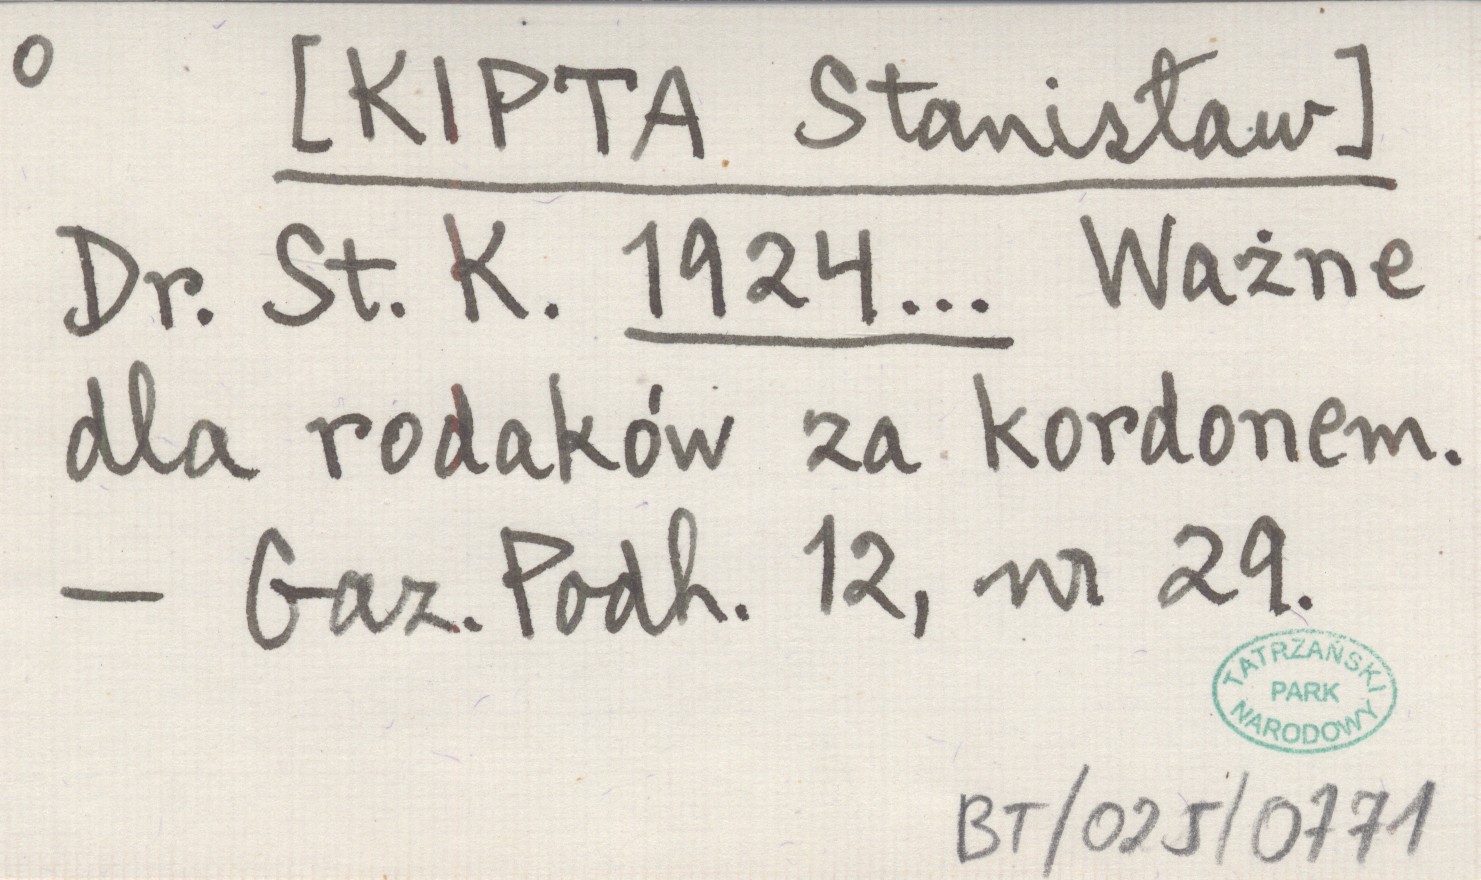 o [KIPTA Stanisław]
Dr. St. K. 1924... Ważne
dla rodaków za kordonem.
— Gaz. Podh. 12, nr 29.
TATRZAŃSKI
PARK
NARODOWY
BT/025/0771